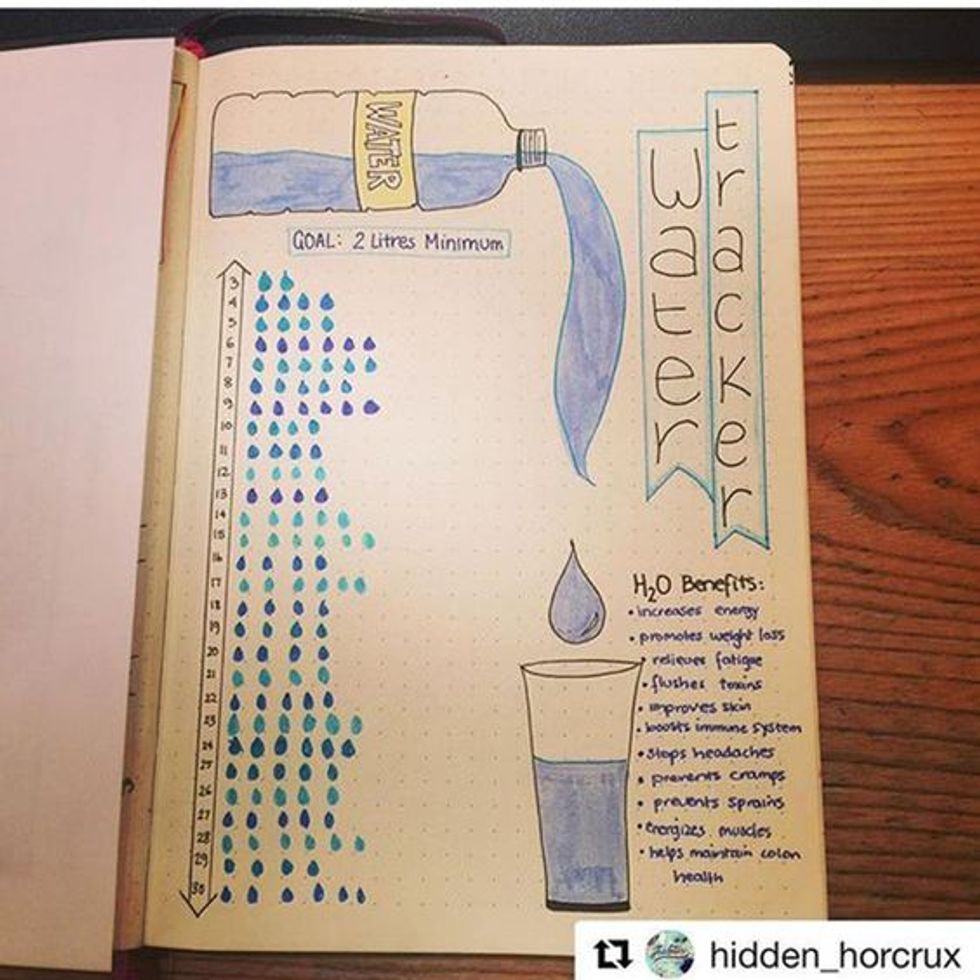 WATER
GOAL: 2 Litres Minimum
water
tracker
3
4
5
6
7
8
9
10
11
12
13
14
15
16
17
18
19
20
21
22
23
24
25
26
27
28
29
30
H₂O Benefits:
• increases energy
• promotes weight loss
• relieves fatigue
• flushes toxins
• improves skin
• boosts immune system
• stops headaches
• prevents cramps
• prevents sprains
• energizes muscles
• helps maintain colon
health
hidden_horcrux